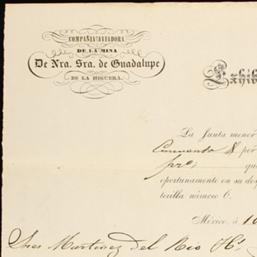 COMPAÑIA AVIADORA
DE LA MINA
De Nra. Sra. de Guadalupe
DE LA HIGUERA.
Exhib
La Junta menor
Cincuenta $ por
qu
oportunamente en su des
torilla número 6.
México, á 10
Sres Martinez del Rio Hs